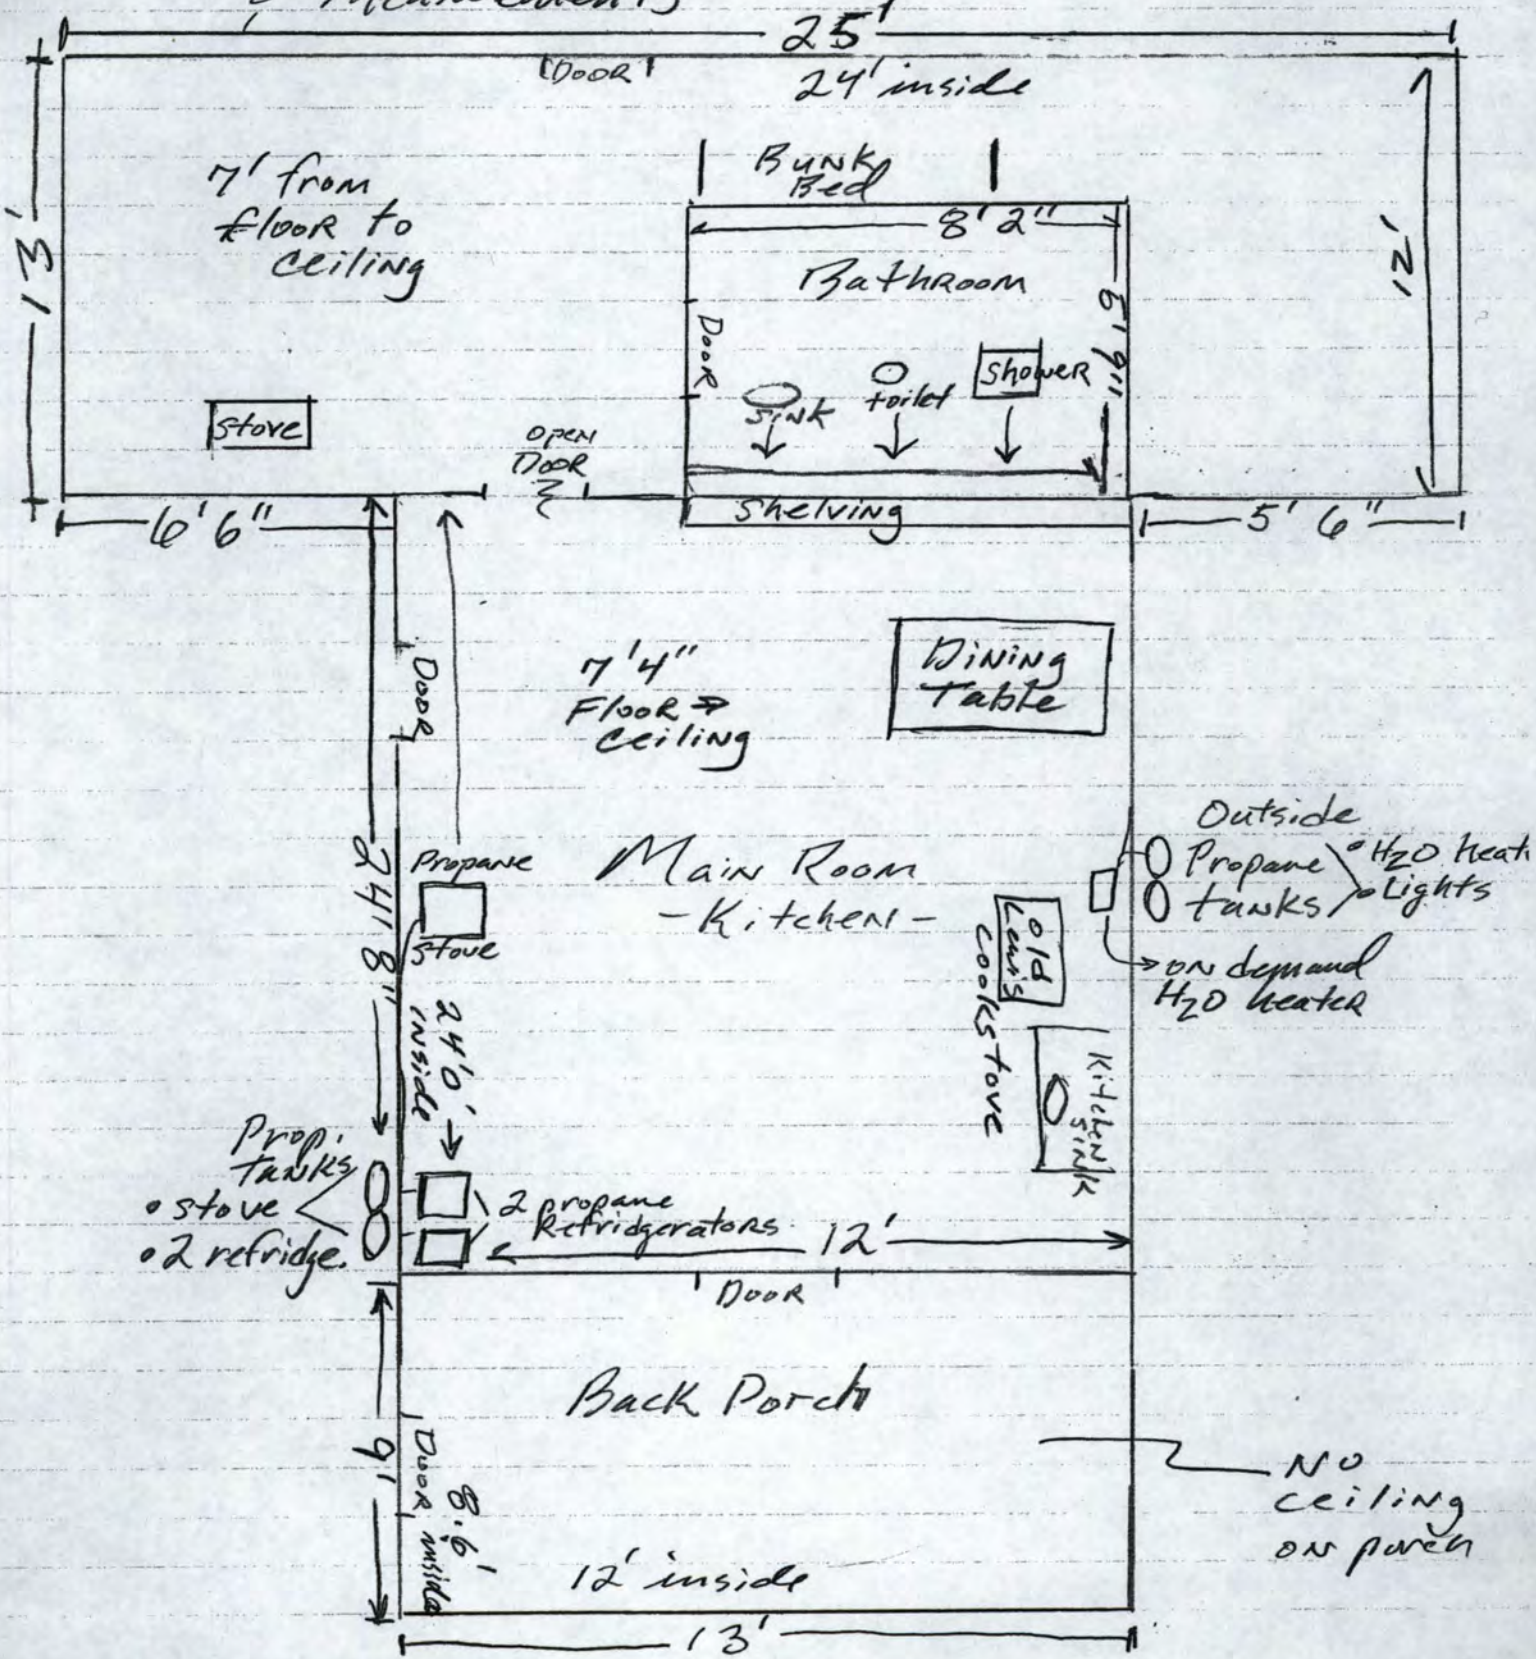 & Measurements
25'
DOOR
24' inside
7' from
floor to
ceiling
Bunk
Bed
8' 2"
13'
12'
Bathroom
5' 9"
Door
shower
toilet
sink
stove
open
Door
shelving
6' 6"
5' 6"
Door
7'4"
Floor →
ceiling
Dining
Table
24' 8"
Propane
stove
Main Room
- Kitchen -
Outside
Propane
tanks
• H2O heat
• Lights
old
Lewis
cookstove
on demand
H2O heater
24'0'
inside
Kitchen
sink
Prop.
Tanks
• stove
• 2 refridge.
2 propane
Refridgerators
12'
Door
Back Porch
9'
Door
8.6'
inside
No
ceiling
on porch
12' inside
13'